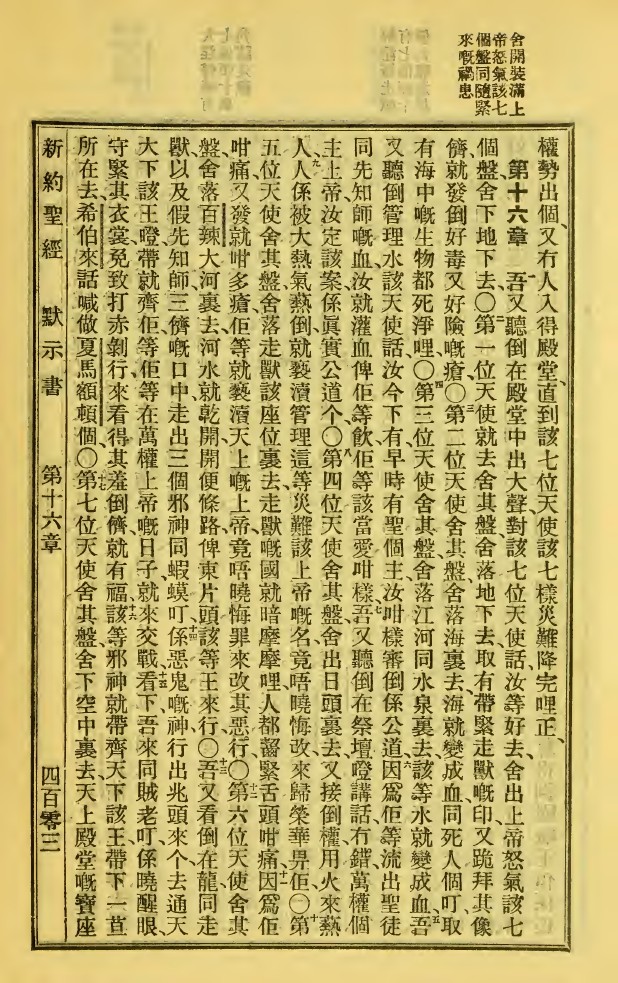 舍開裝滿上
帝怒氣該七
個盤同隨緊
來嘅禍患
權勢出個、又冇人入得殿堂、直到該七位天使該七樣災難降完哩正、
第十六章 一吾又聽倒在殿堂中出大聲對該七位天使話、汝等好去、舍出上帝怒氣該七
個盤舍下地下去〇二第一位天使就去舍其盤舍落地下去、取有帶緊走獸嘅印又跪拜其像
儕就發倒好毒又好險嘅瘡〇三第二位天使舍其盤舍落海裏去、海就變成血同死人個叮、取
有海中嘅生物都死淨哩〇四第三位天使舍其盤舍落江河同水泉裏去、該等水就變成血、五吾
又聽倒管理水該天使話、汝今下有早時有聖個主、汝咁樣審倒係公道、六因爲佢等流出聖徒
同先知師嘅血、汝就灌血俾佢等飲、佢等該當愛咁樣、七吾又聽倒在祭壇嶝講話、冇錯、萬權個
主上帝、汝定該案係眞實公道个〇八第四位天使舍其盤舍出日頭裏去、又接倒權用火來爇
人、九人係被大熱氣爇倒、就褻瀆管理這等災難該上帝嘅名、竟唔曉悔改來歸榮華畀佢〇十第
五位天使舍其盤舍落走獸該座位裏去、走獸嘅國就暗摩摩哩、人都齧緊舌頭咁痛、十一因爲佢
咁痛又發就咁多瘡、佢等就褻瀆天上嘅上帝、竟唔曉悔罪來改其惡行〇十二第六位天使舍其
盤舍落百辣大河裏去、河水就乾開開、便條路俾東片頭該等王來行〇十三吾又看倒在龍同走
獸以及假先知師三儕嘅口中走出三個邪神同蝦蟆叮、十四係惡鬼嘅神、行出兆頭來个、去通天
大下該王嶝、帶就齊佢等、佢等在萬權上帝嘅日子就來交戰、十五看下、吾來同賊老叮、係曉醒眼、
守緊其衣裳、免致打赤剝行、來看得其羞倒儕就有福、十六該等邪神就帶齊天下該王、帶下一荁
所在去、希伯來話喊做夏馬額頓個〇十七第七位天使舍其盤舍下空中裏去、天上殿堂嘅寶座
新約聖經 默示書 第十六章 四百零三